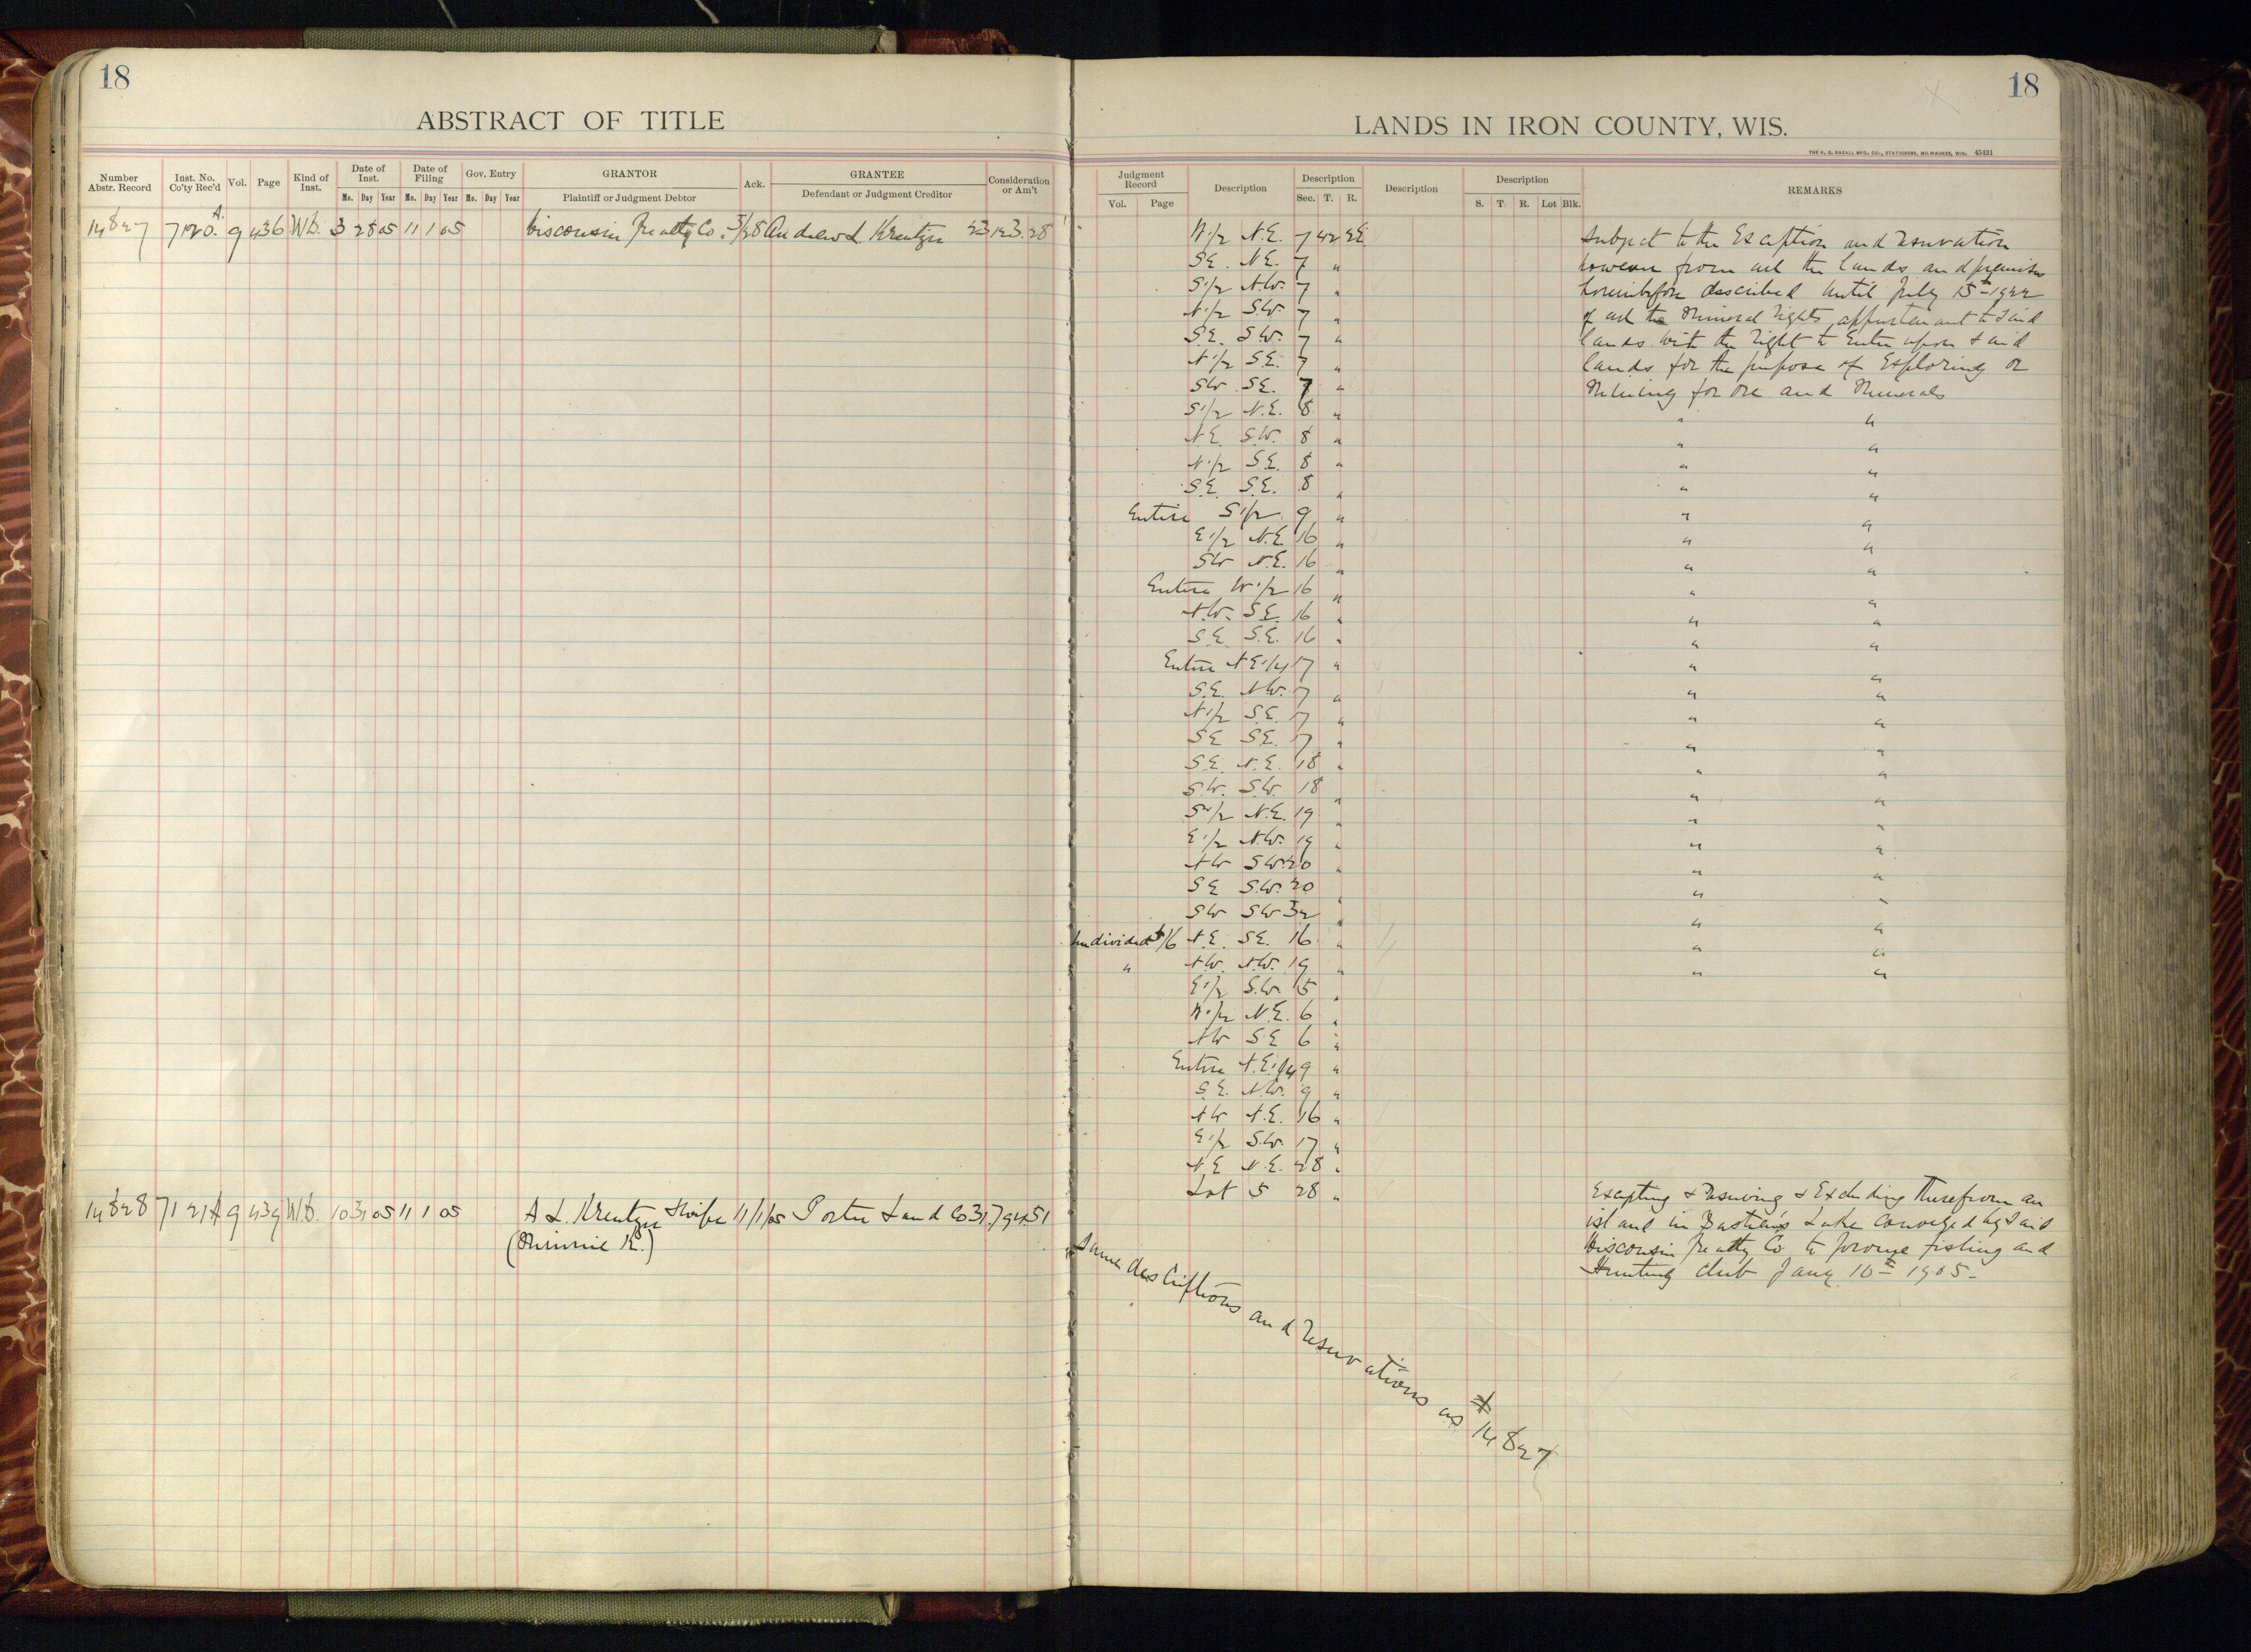 18
ABSTRACT OF TITLE
Number Abstr. Record
Inst. No. Co'ty Rec'd
Vol.
Page
Kind of Inst.
Date of Inst.
Mo. Day Year
Date of Filing
Mo. Day Year
Gov. Entry
Mo. Day Year
GRANTOR
Plaintiff or Judgment Debtor
Ack.
GRANTEE
Defendant or Judgment Creditor
Consideration or Am't
14827 7120 A. 9 436 W.D. 3 28 05 11 1 05 Wisconsin Realty Co. 3/28 Andrew L Kreutzer 23123.28
14828 7121 A 9 439 W.D. 10 31 05 11 1 05 A L. Kreutzer & wife 11/1/05 Porter Land Co 31,794.51
(Minnie K.)
18
LANDS IN IRON COUNTY, WIS.
THE H. G. RAZALL MFG. CO., STATIONERS, MILWAUKEE, WIS. 45431
Judgment Record
Vol. Page
Description
Description
Sec. T. R.
Description
Description
S. T. R. Lot Blk.
REMARKS
W 1/2 N.E. 7 42 3E Subject to the Exception and reservation
SE. N.E. 7 " however from all the lands and premises
S 1/2 N.W. 7 " hereinbefore described until July 15th 1922
N 1/2 S.W. 7 " of all the Mineral rights appurtenant to said
S.E. S.W. 7 " lands with the right to Enter upon said
N 1/2 S.E. 7 " lands for the purpose of Exploring or
SW S.E. 7 " Mining for ore and Minerals
S 1/2 N.E. 8 " " "
N.E. S.W. 8 " " "
N 1/2 S.E. 8 " " "
S.E. S.E. 8 " " "
Entire S 1/2 9 " " "
E 1/2 N.E. 16 " " "
SW N.E. 16 " " "
Entire W 1/2 16 " " "
N.W. S.E. 16 " " "
SE S.E. 16 " " "
Entire N E 1/4 17 " " "
S.E. N.W. 17 " " "
N 1/2 S.E. 17 " " "
SE S.E. 17 " " "
S.E. N.E. 18 " " "
S.W. S.W. 18 " " "
S 1/2 N.E. 19 " " "
E 1/2 N.W. 19 " " "
NW S.W. 20 " " "
SE S.W. 20 " " "
SW SW 32 " " "
Undivided 5/6 N.E. SE. 16 " " "
" N.W. N.W. 19 " " "
E 1/2 S.W. 5 "
W 1/2 N.E. 6 "
NW S E 6 "
Entire N.E. 1/4 9 "
S.E. N.W. 9 "
NW N.E. 16 "
E 1/2 S.W. 17 "
N E N.E. 28 "
Lot 5 28 "
Excepting & reserving & Excluding therefrom an
island in Bastian's Lake conveyed by said
Wisconsin Realty Co. to fishing and
Hunting club Jany 10th 1905-
Same descriptions and reservations as #14827